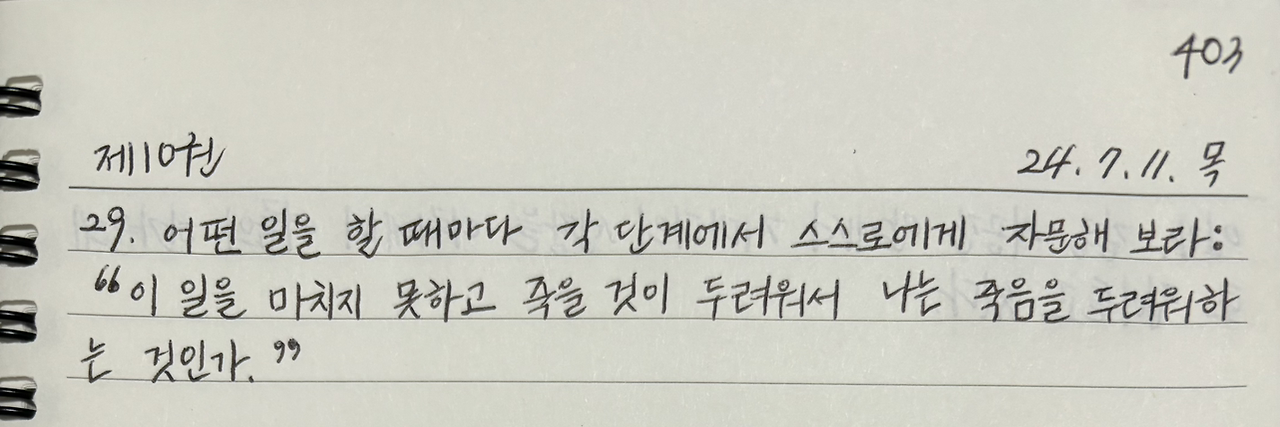 403
제10권 24.7.11. 목
29. 어떤 일을 할 때마다 각 단계에서 스스로에게 자문해 보라:
“이 일을 마치지 못하고 죽을 것이 두려워서 나는 죽음을 두려워하
는 것인가.”